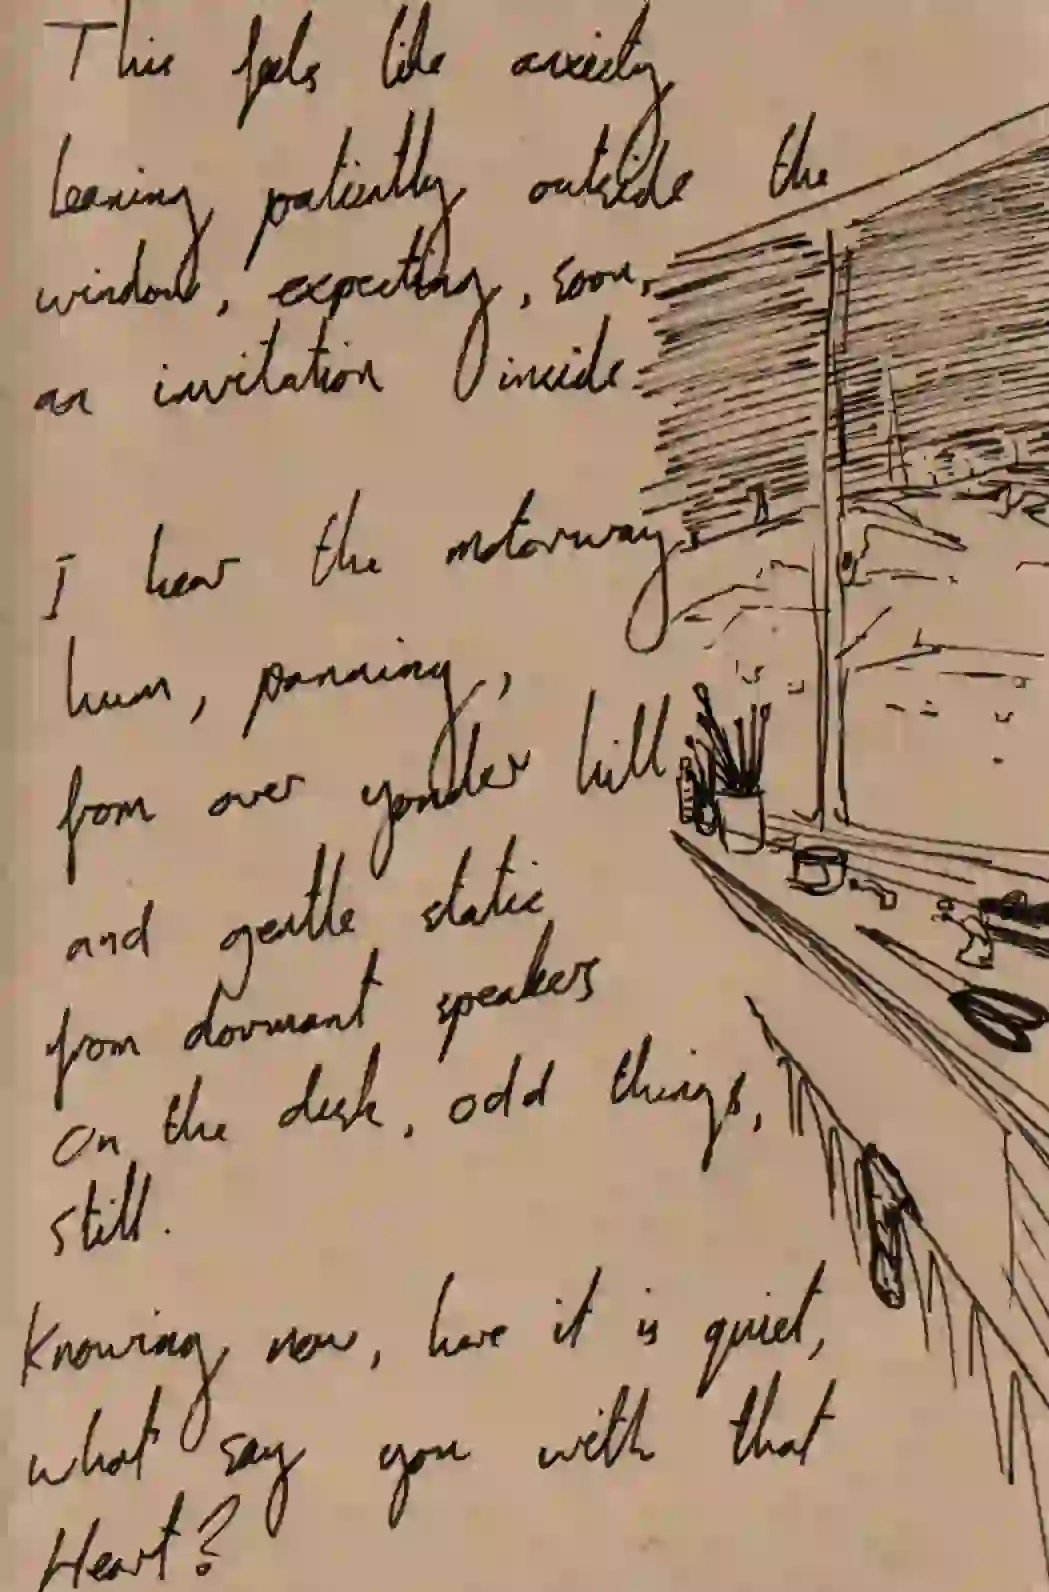 This feels like anxiety
leaning patiently outside the
window, expecting, soon,
an invitation inside.
I hear the motorway
hum, panning,
from over yonder hill
and gentle static
from dormant speakers
on the desk, odd things,
still.
Knowing, now, here it is quiet,
what say you with that
Heart?